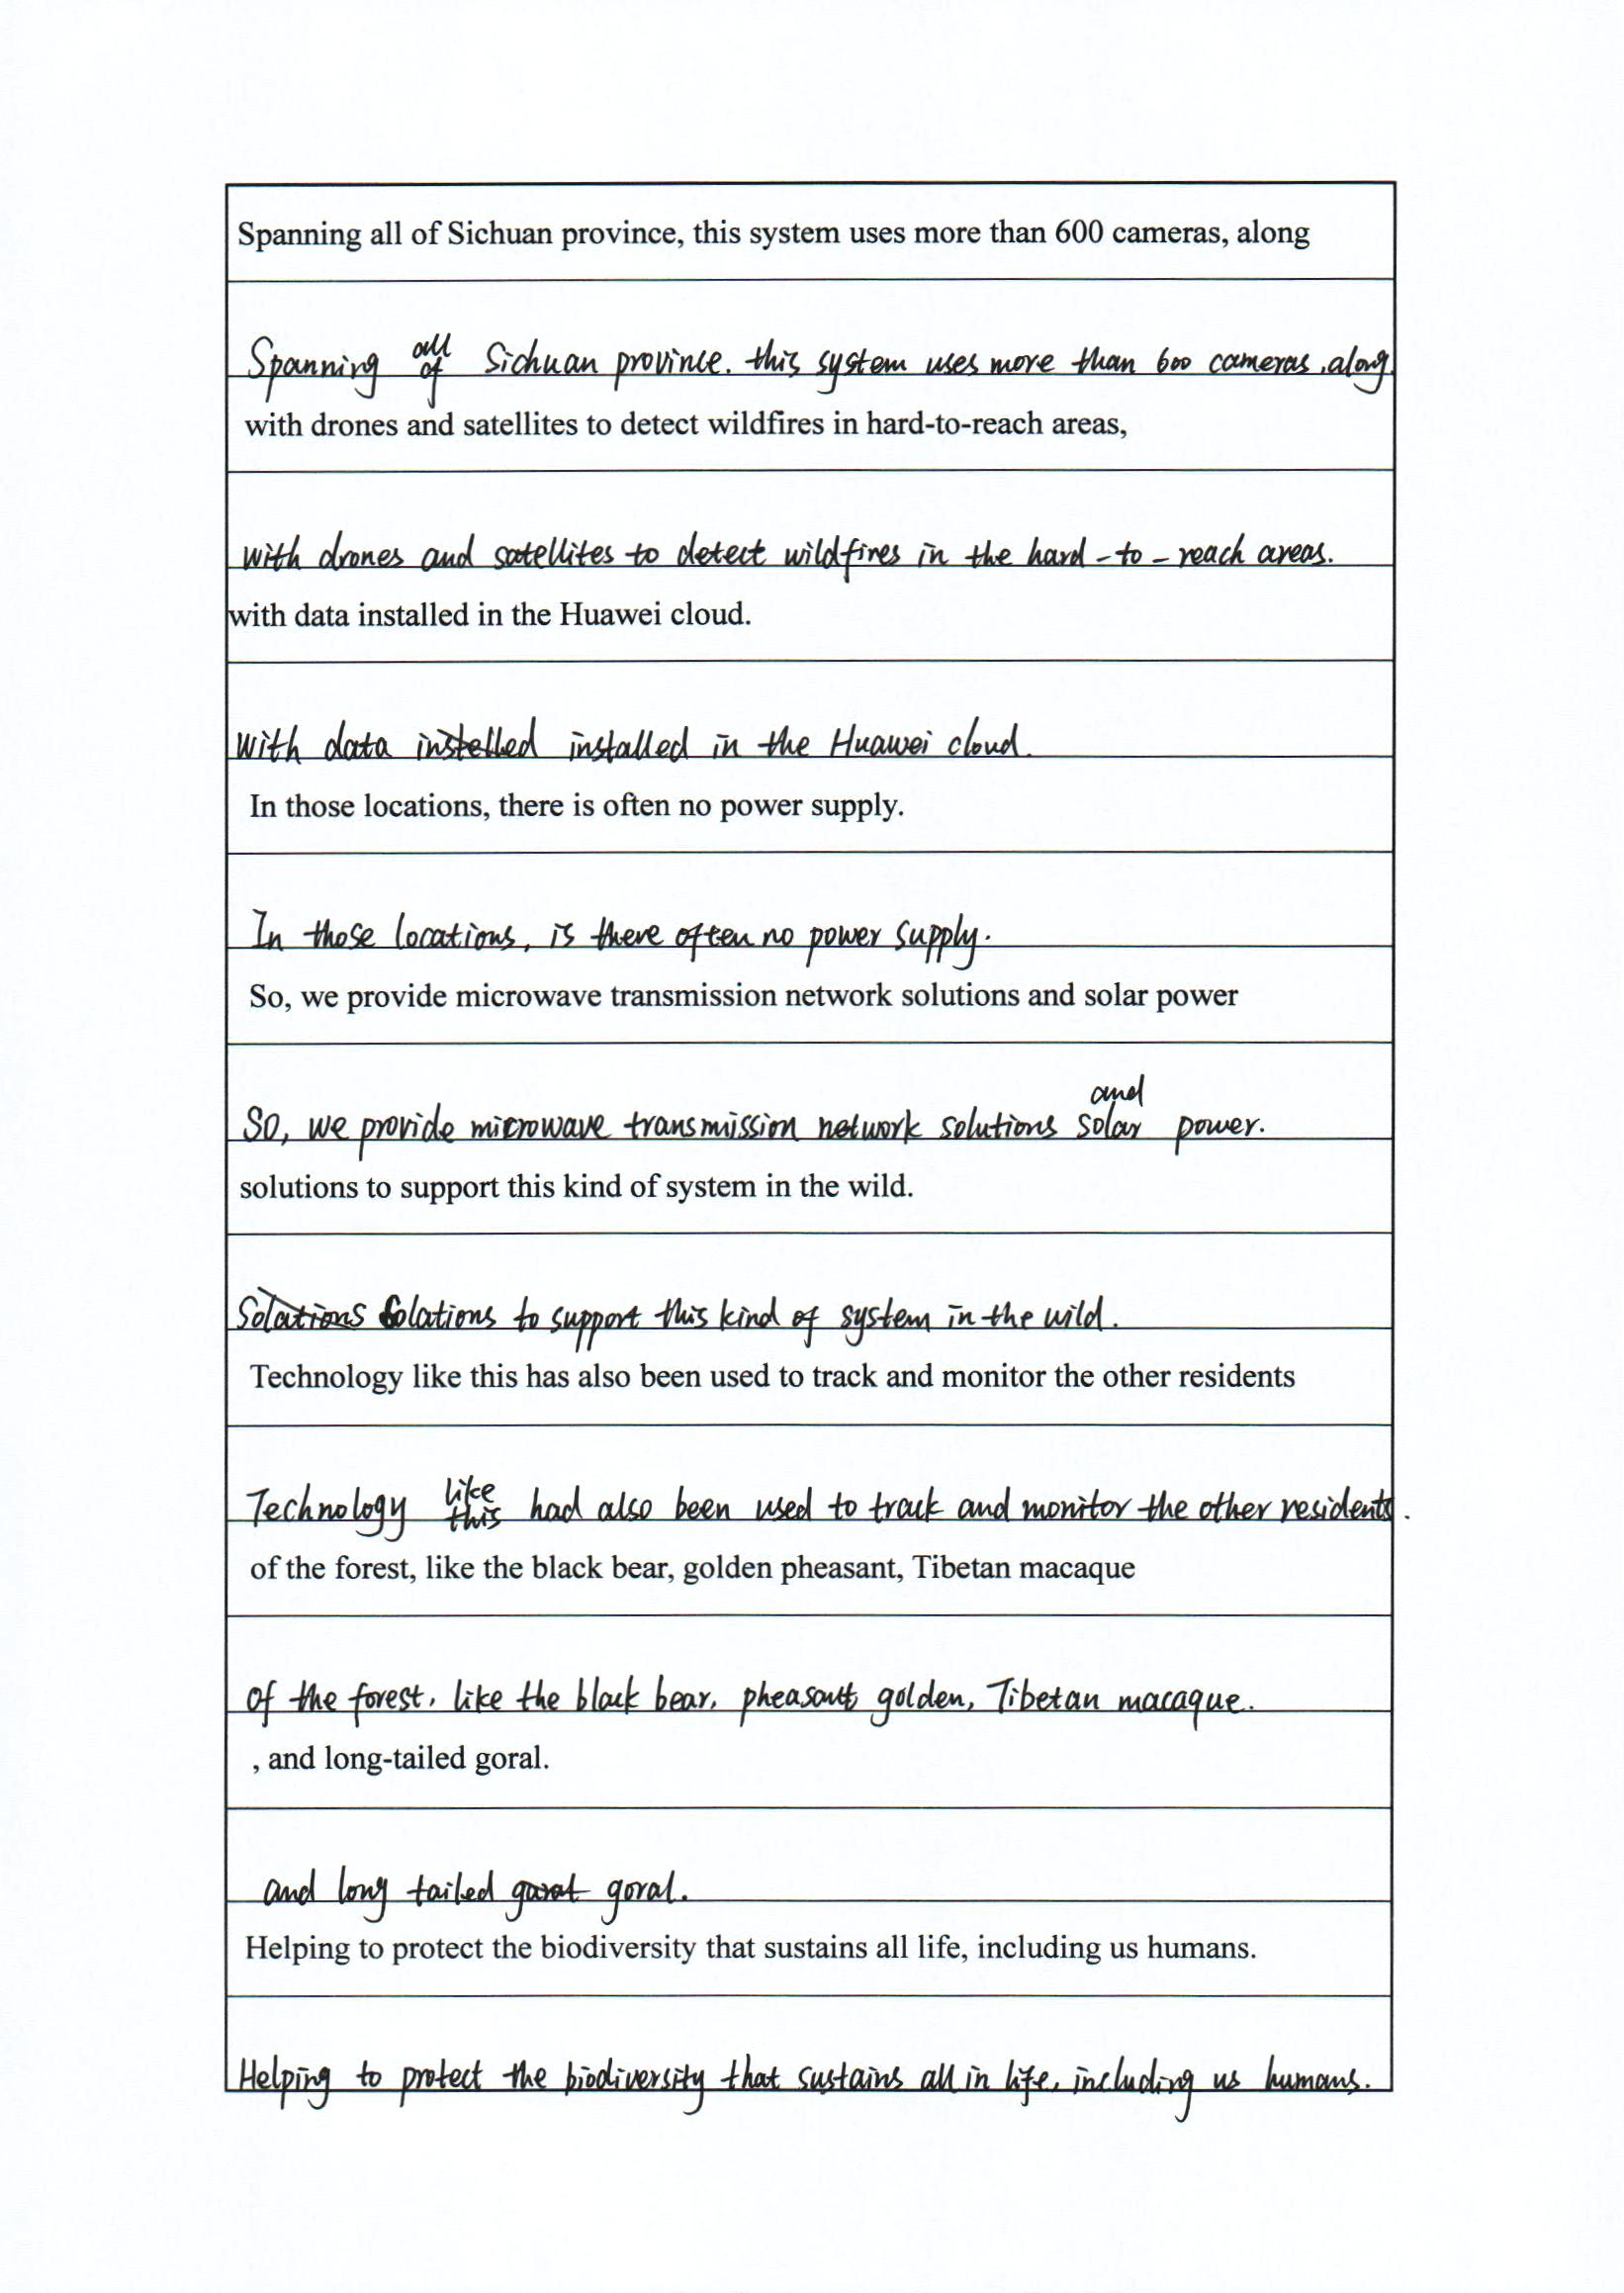 Spanning all of Sichuan province, this system uses more than 600 cameras, along
Spanning all of Sichuan province. this system uses more than 600 cameras, along.
with drones and satellites to detect wildfires in hard-to-reach areas,
with drones and satellites to detect wildfires in the hard-to-reach areas.
with data installed in the Huawei cloud.
with data instelled installed in the Huawei cloud.
In those locations, there is often no power supply.
In those locations, is there often no power supply.
So, we provide microwave transmission network solutions and solar power
So, we provide microwave transmission network solutions and solar power.
solutions to support this kind of system in the wild.
Solations Solations to support this kind of system in the wild.
Technology like this has also been used to track and monitor the other residents
Technology like this had also been used to track and monitor the other residents.
of the forest, like the black bear, golden pheasant, Tibetan macaque
of the forest, like the black bear, pheasant golden, Tibetan macaque.
, and long-tailed goral.
and long tailed goral.
Helping to protect the biodiversity that sustains all life, including us humans.
Helping to protect the biodiversity that sustains all in life, including us humans.